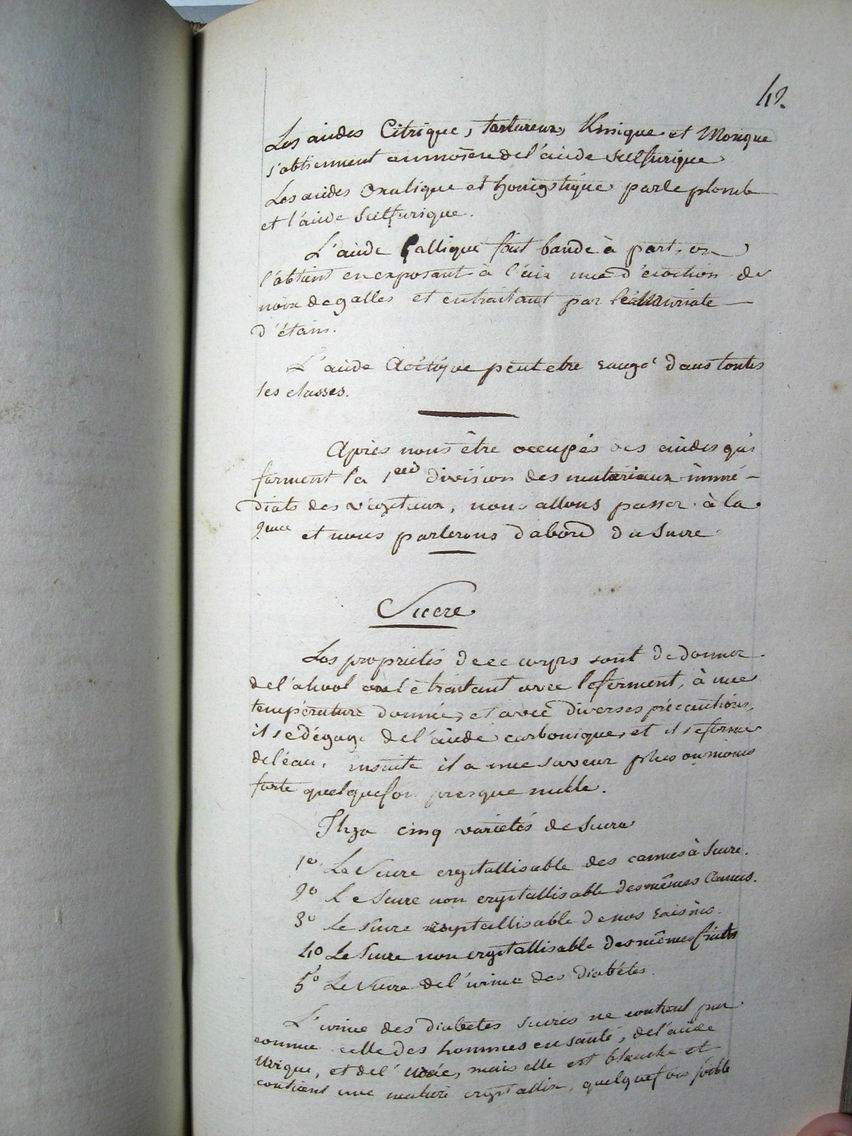 42.
Les acides Citrique, tartareux, Kinique et Morique
s'obtiennent au moien de l'acide sulfurique
Les acides Oxalique et honigstique par le plomb
et l'acide Sulfurique.
L'acide Gallique fait bande à part, on
l'obtient en exposant à l'air une décoction de
noix de galles et en traitant par le Muriate
d'étain.
L'acide Acétique peut etre rangé dans toutes
les classes.
Après nous être occupés des acides qui
forment la 1ere division des materiaux immé-
diats des végétaux, nous allons passer à la
2eme et nous parlerons d'abord du Sucre.
Sucre
Les propriétés de ce corps sont de donner
de l'alcool en le traitant avec le ferment, à une
température donnée, et avec diverses précautions,
il se dégage de l'acide carbonique, et il se forme
de l'eau, ensuite il a une saveur plus ou moins
forte quelquefois presque nulle.
Il y a cinq variétés de Sucre
1o Le Sucre crystallisable des cannes à Sucre.
2o Le Sucre non crystallisable des mêmes Cannes.
3o Le Sucre crystallisable de nos raisins.
4o Le Sucre non crystallisable des mêmes fruits
5o Le Sucre de l'urine des diabétes.
L'urine des diabétes sucrés ne contient pas
comme celle des hommes en santé, de l'acide
Urique, et de l'Urée, mais elle est blanche et
contient une matière crystalline, quelquefois